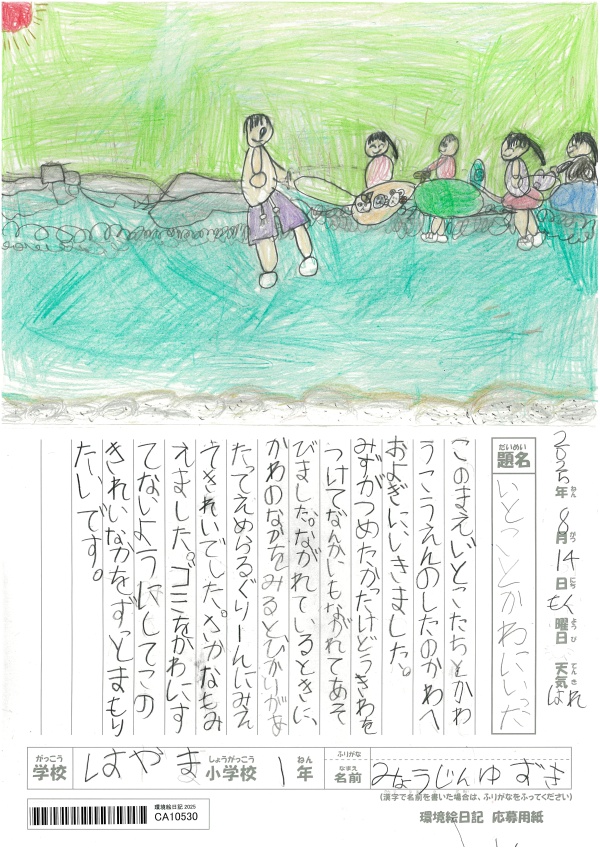 2025年ねん8月がつ14日にちもく曜日ようび天気てんきはれ
だいめい
題名
いとことかわにいった
このまえ、いとこたちとかわ
うこうえんのしたのかわへ
およぎにいきました。
みずがつめたかったけどうきわを
つけてなんかいもながれてあそ
びました。ながれているときに、
かわのなかをみるとひかりがあ
たってえめらるぐりーんにみえ
てきれいでした。さかなもみ
えました。ゴミをかわにす
てないようにしてこの
きれいなかをずっとまもり
たいです。
がっこう しょうがっこう ねん ふりがな
学校 はやま 小学校 1年 なまえ 名前 みょうじんゆずき
(漢字で名前を書いた場合は、ふりがなをふってください)
環境絵日記 応募用紙
環境絵日記 2025
CA10530